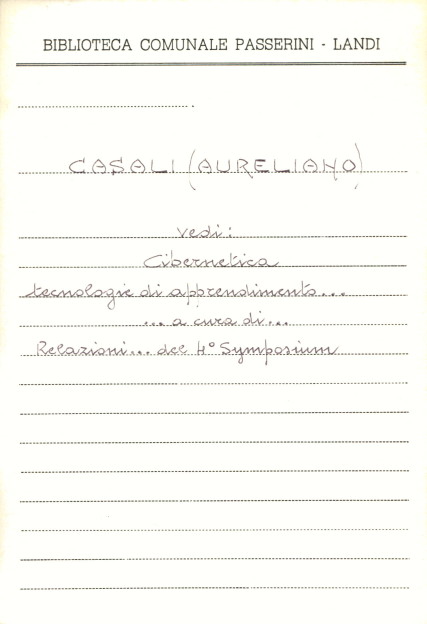 BIBLIOTECA COMUNALE PASSERINI - LANDI
CASALI (AURELIANO)
vedi:
Cibernetica
tecnologie di apprendimento...
... a cura di...
Relazioni... del 4° Symposium